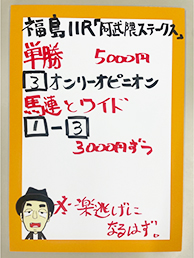 福島11R「阿武隈ステークス」
単勝 5000円
3オンリーオピニオン
馬連とワイド
1-3
3000円ずつ
楽逃げに
なるはず。